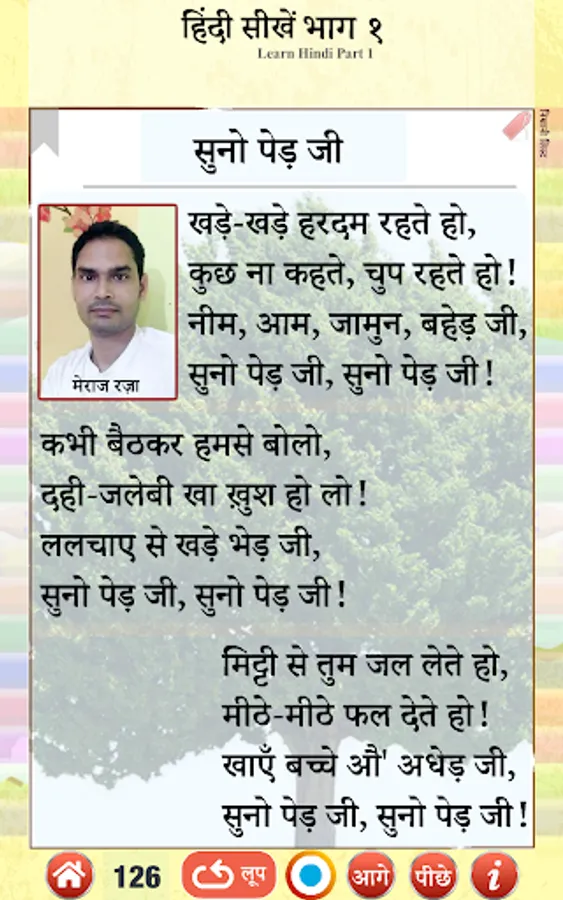 हिंदी सीखें भाग १
Learn Hindi Part 1
सुनो पेड़ जी
खड़े-खड़े हरदम रहते हो,
कुछ ना कहते, चुप रहते हो!
नीम, आम, जामुन, बहेड़ जी,
सुनो पेड़ जी, सुनो पेड़ जी!
मेराज रज़ा
कभी बैठकर हमसे बोलो,
दही-जलेबी खा ख़ुश हो लो!
ललचाए से खड़े भेड़ जी,
सुनो पेड़ जी, सुनो पेड़ जी!
मिट्टी से तुम जल लेते हो,
मीठे-मीठे फल देते हो!
खाएँ बच्चे औ' अधेड़ जी,
सुनो पेड़ जी, सुनो पेड़ जी!
126
लूप
आगे
पीछे
i